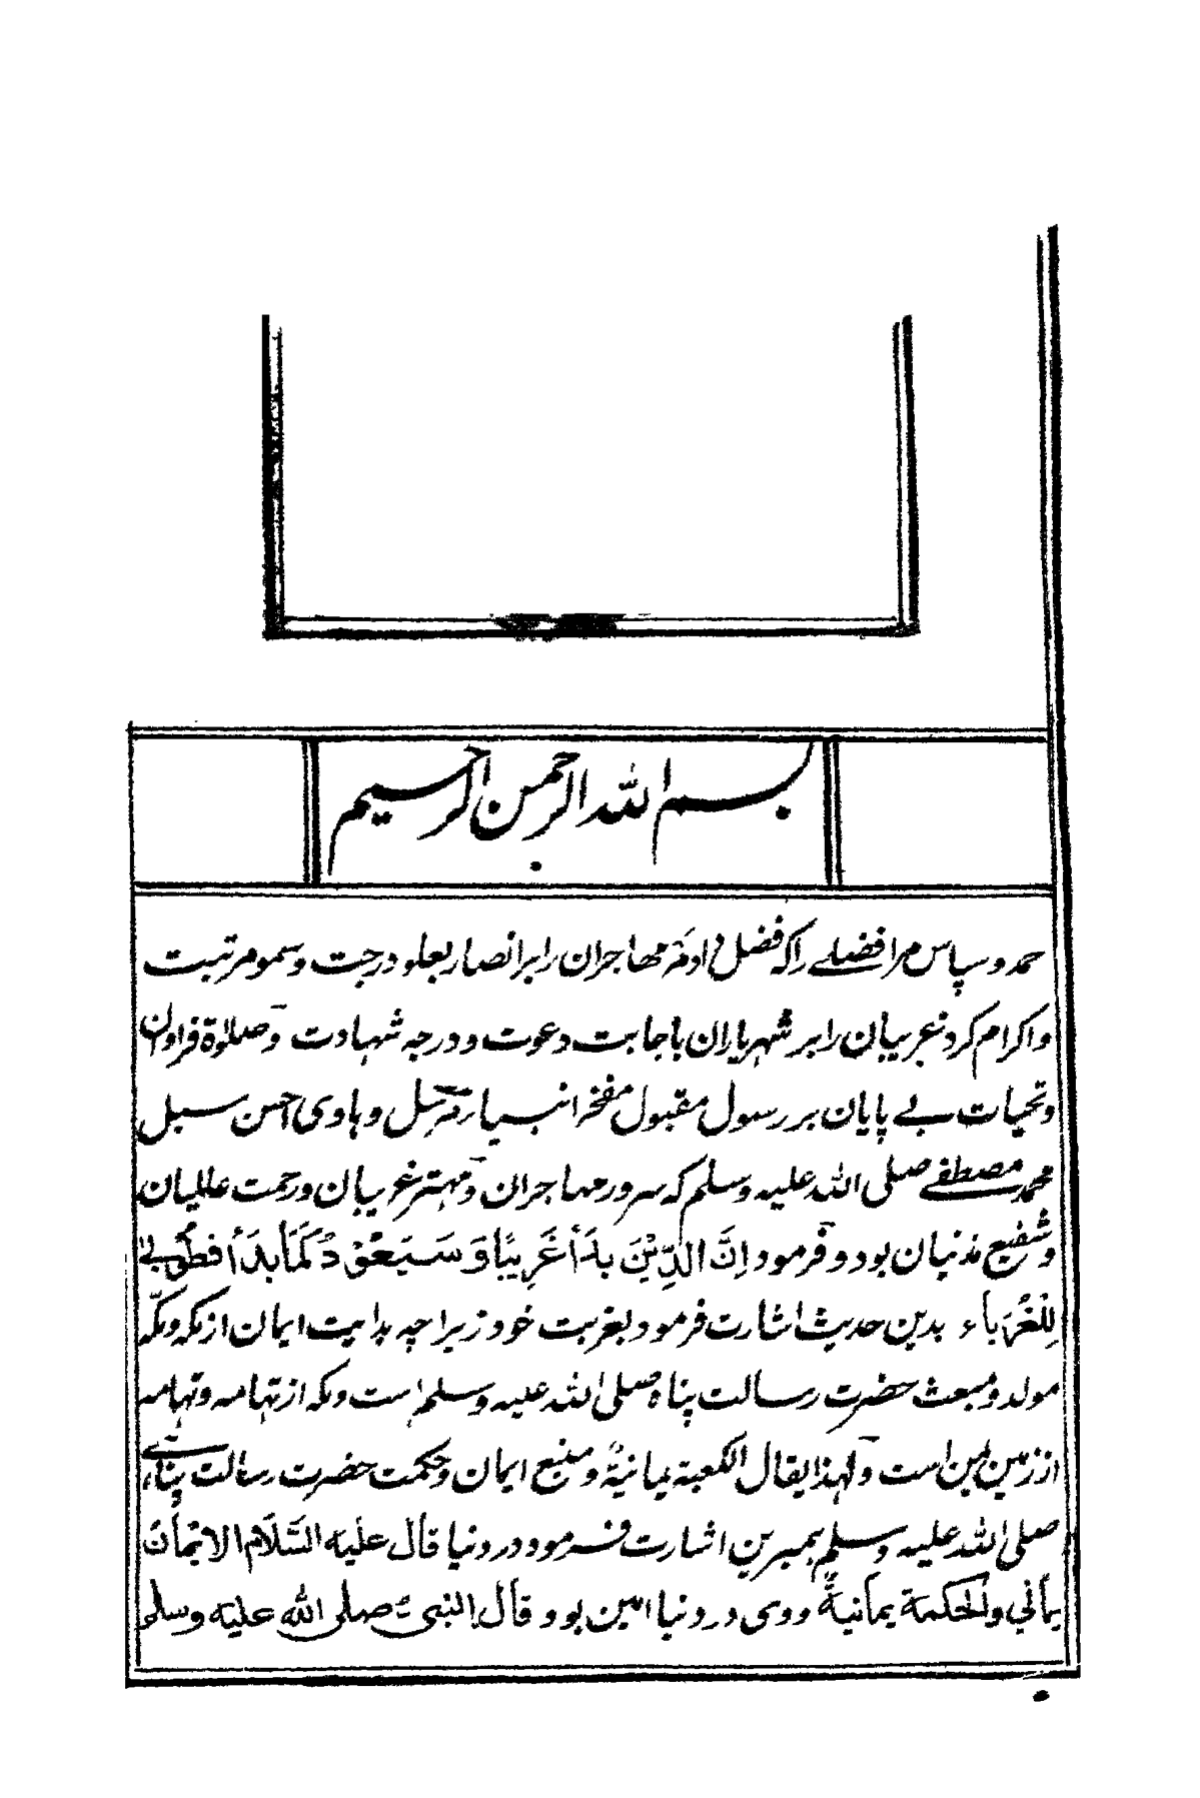 بسم الله الرحمن الرحیم
حمد و سپاس مر افضلے را که فضل او مر مهاجران را بر انصار بعلو درجت و سمو مرتبت
و اکرام کرد غریبان را بر شهریاران باجابت دعوت و درجه شهادت و صلوٰة فراوان
و تحیات بے پایان بر رسول مقبول مفخر انبیا و رسل و هادی احسن سبل
محمد مصطفے صلی الله علیه وسلم که سرور مهاجران و مهتر غریبان و رحمت عالمیان
و شفیع مذنبان بود و فرمود اِنَّ الدِّیْنَ بَدَأَ غَرِیبًا وَ سَیَعُوْدُ کَمَا بَدَأَ فَطُوْبٰی
لِلْغُرَبَاءِ بدین حدیث اشارت فرمود بغربت خود زیراچه بدایت ایمان از مکه و مکّه
مولد و مبعث حضرت رسالت پناه صلی الله علیه وسلم است و مکه از تهامه و تهامه
از زمین یمن است و لهذا یقال الکعبة یمانیةٌ و منبع ایمان و حکمت حضرت رسالت پناهے
صلی الله علیه وسلم بمبرین اشارت فرمود در دنیا قال عَلَیْهِ السَّلَام الایمان
یمانی والحکمة یمانیةٌ و وی در دنیا امین بود و قال النبی صلی الله علیه وسلم